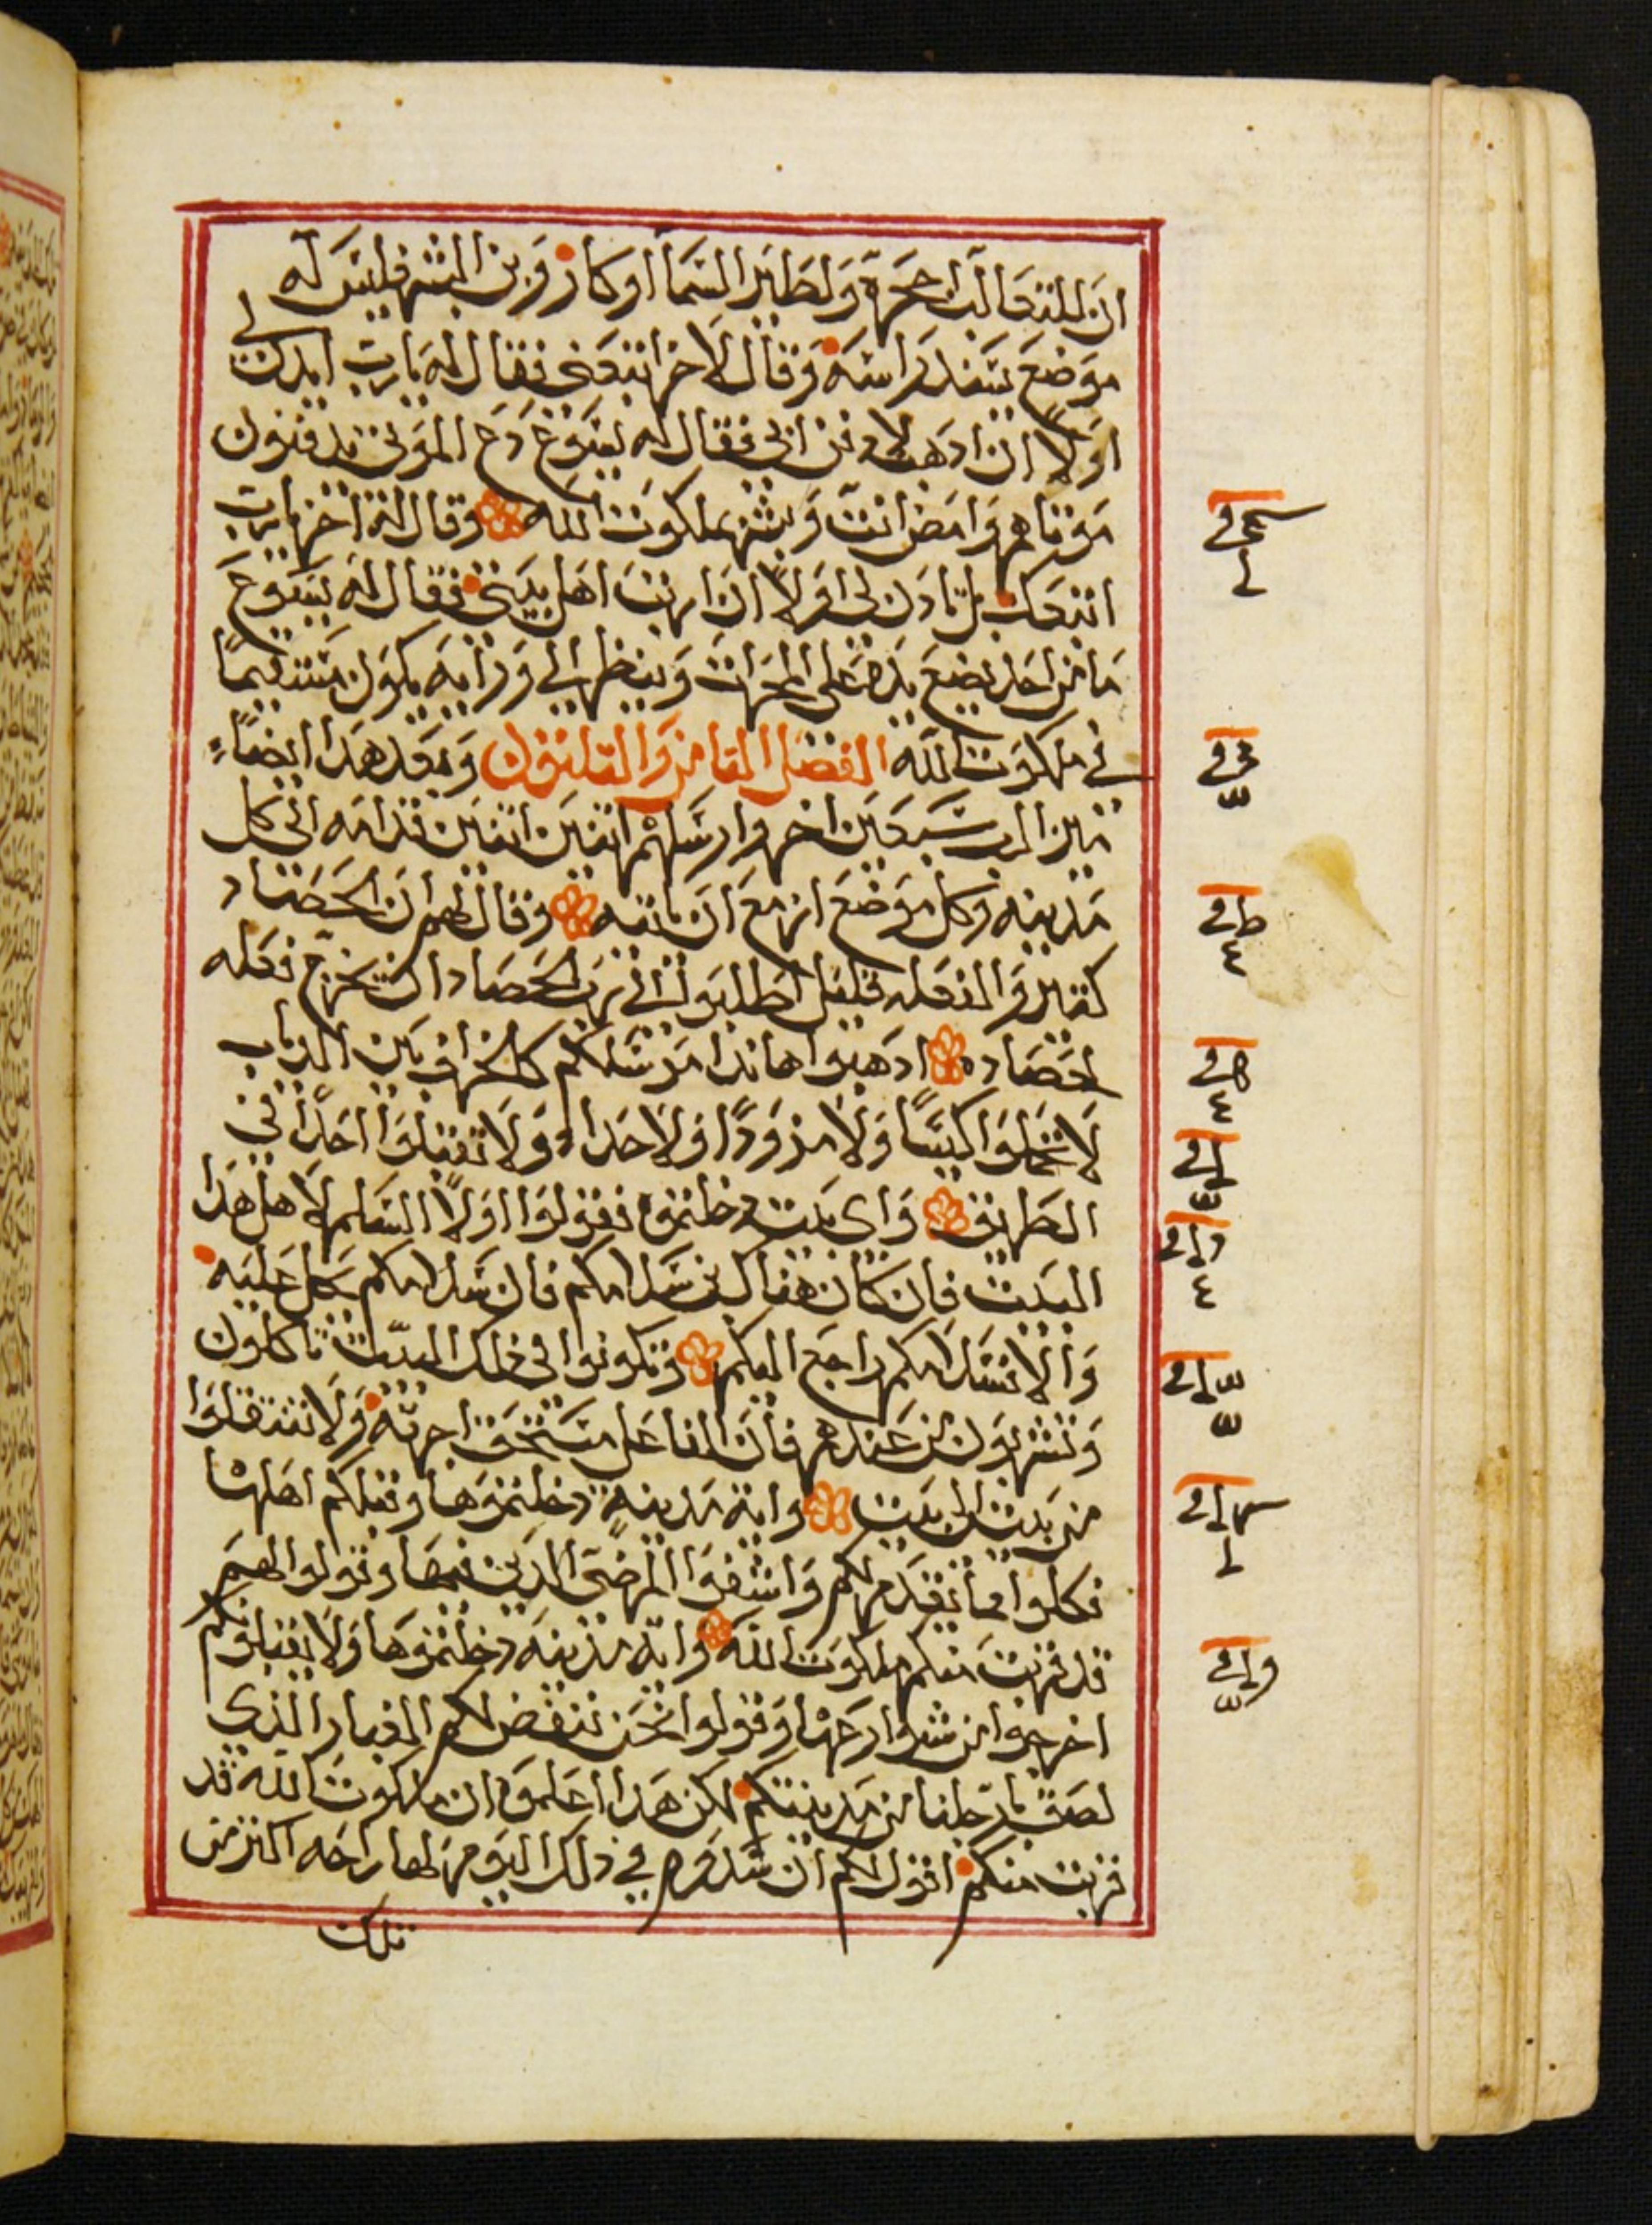 ان للتعالب اجحرة ولطاير السما اوكار وابن البشر فليس له
موضع يسند راسه وقال لاخر اتبعني فقال له يارب ايدن لي
اولا ان اذهب لادفن ابي فقال له يسوع دع الموتى يدفنون
موتاهم وامض انت وبشر بملكوت الله وقال له اخر يارب
اتبعك بل تادن لي اولا ان ارتب اهل بيتي فقال له يسوع
ما من احد يضع يده على المحراث وينظر الى ورايه يكون مستقيما
في ملكوت الله الفصل التامن والتلتون وبعد هدا ايضا
ميز الرب سبعين اخر وارسلهم اتنين اتنين قدامه الى كل
مدينه وكل موضع ازمع ان ياتيه وقال لهم ان الحصاد
كتير والفعله قليل اطلبوا الى رب الحصاد ان يخرج فعله
لحصاده ادهبوا هاندا مرسلكم كالخراف بين الدياب
لا تحملوا كيسا ولا مزودا ولا حدا ولا تقبلوا احدا في
الطريق واي بيت دخلتموه فقولوا اولا السلم لاهل هدا
البيت فان كان هناك بن سلامكم فان سلامكم يحل عليه
والا فسلامكم راجع اليكم وتكونوا في ذلك البيت تاكلون
وتشربون من عندهم فان الفاعل مستحق اجرته ولا تنتقلوا
من بيت الى بيت واية مدينه دخلتموها وقبلكم اهلها
فكلوا مما يقدم لكم واشفوا المرضى الدين فيها وقولوا لهم
قد قربت منكم ملكوت الله واية مدينه دخلتموها ولا يقبلوكم
اخرجوا من شوارعها وقولوا نحن ننفض لكم الغبار الذي
لصق بارجلنا من مدينتكم لكن هدا اعلموا ان ملكوت الله قد
قربت منكم اقول لكم ان سدوم في ذلك اليوم لها راحه اكتر من
تلك